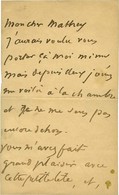 Mon cher Mathey
j'aurais voulu vous
porter ça moi même
mais depuis deux jours
me voilà à la chambre
et je ne me sens pas
encore dehors.
vous m'avez fait
grand plaisir avec
cette petite et,